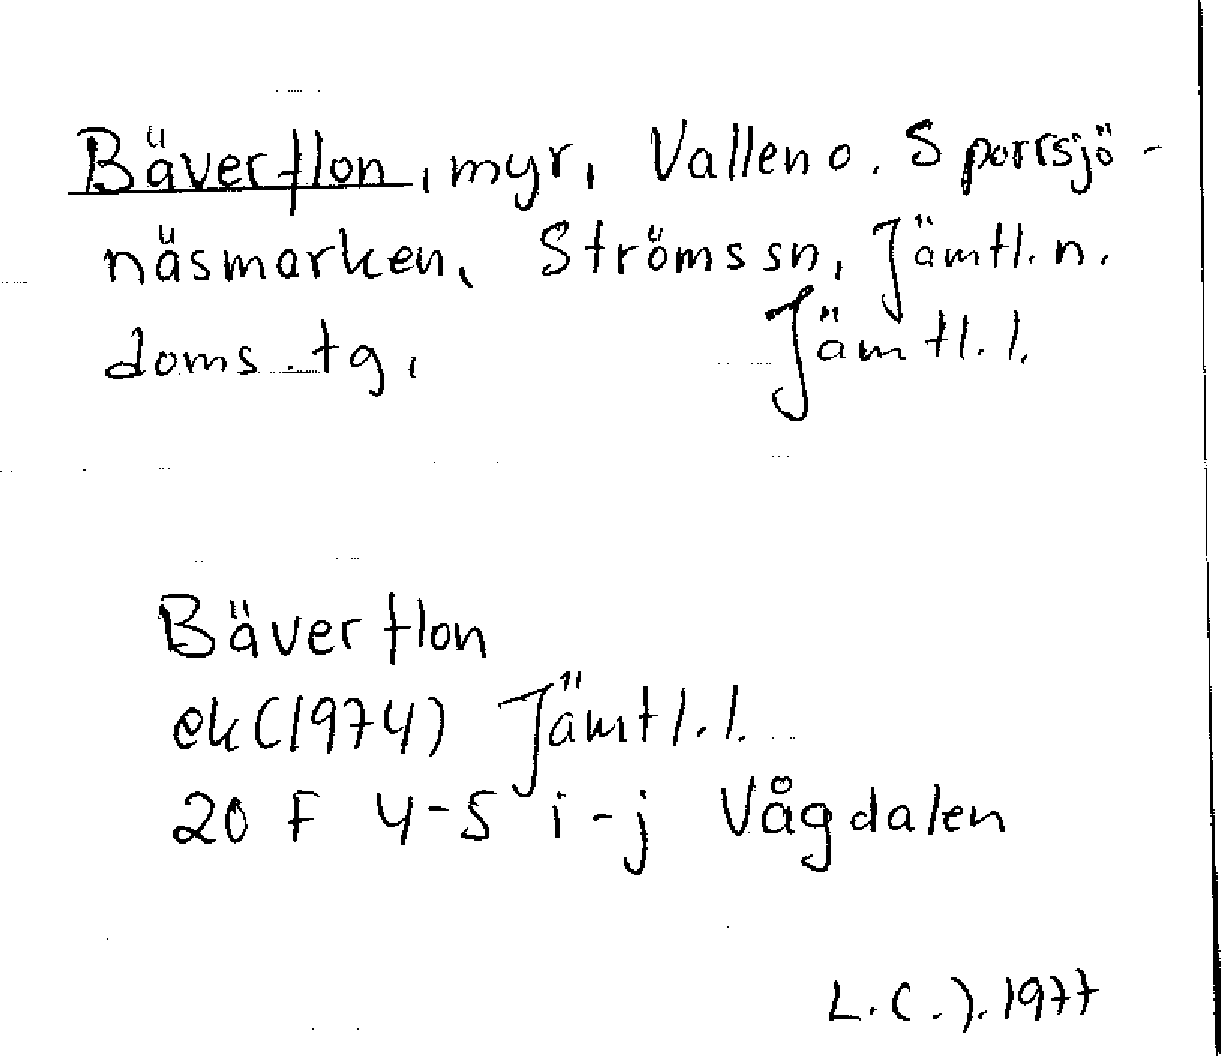 Bäverflon, myr, Vallen o. Sporrsjö-
näsmarken, Ströms sn, Jämtl. n.
doms.tg, Jämtl. l.
Bäverflon
ek (1974) Jämtl. l.
20 F 4-5 i-j Vågdalen
L.C.J. 1977